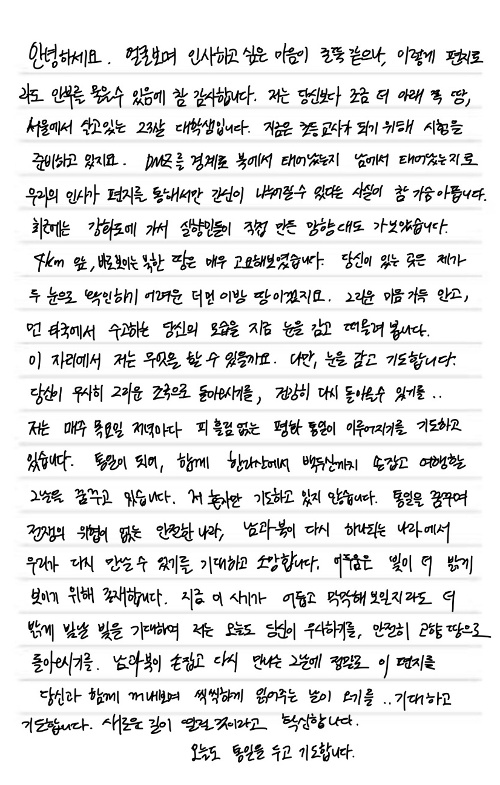 안녕하세요. 얼굴보며 인사하고 싶은 마음이 굴뚝 같으나, 이렇게 편지로
라도 안부를 물을수 있음에 참 감사합니다. 저는 당신보다 조금 더 아래 쪽 땅,
서울에서 살고있는 23살 대학생입니다. 지금은 초등교사가 되기 위해 시험을
준비하고 있지요. DMZ를 경계로 북에서 태어났는지 남에서 태어났는지로
우리의 인사가 편지를 통해서만 간신히 나누어질수 있다는 사실이 참 가슴아픕니다.
최근에는 강화도에 가서 실향민들이 직접 만든 망향대도 가보았습니다.
4km 앞, 바로보이는 북한 땅은 매우 고요해보였습니다. 당신이 있는 곳은 제가
두 눈으로 확인하기 어려운 더 먼 이방 땅이겠지요. 그리운 마음 가득 안고,
먼 타국에서 수고하는 당신의 모습을 지금 눈을 감고 떠올려 봅니다.
이 자리에서 저는 무엇을 할 수 있을까요. 다만, 눈을 감고 기도합니다.
당신이 무사히 그리운 조국으로 돌아오시기를, 건강히 다시 돌아올수 있기를..
저는 매주 목요일 저녁마다 피 흘림 없는 평화 통일이 이루어지기를 기도하고
있습니다. 통일이 되어, 함께 한라산에서 백두산까지 손잡고 여행할
그날을 꿈꾸고 있습니다. 저 혼자만 기도하고 있지 않습니다. 통일을 꿈꾸며
전쟁의 위협이 없는 안전한 나라, 남과북이 다시 하나되는 나라에서
우리가 다시 만날 수 있기를 기대하고 소망합니다. 어두움은 빛이 더 밝게
보이기 위해 존재합니다. 지금 이 시기가 어둡고 막막해 보일지라도 더
밝게 빛날 빛을 기대하며 저는 오늘도 당신이 무사하기를, 안전히 고향 땅으로
돌아오시기를. 남과북이 손잡고 다시 만나는 그날에 정말로 이 편지를
당신과 함께 꺼내보며 씩씩하게 읽어주는 날이 오기를.. 기대하고
기도합니다. 새로운 길이 열릴 것이라고 확신합니다.
오늘도 통일을 두고 기도합니다.